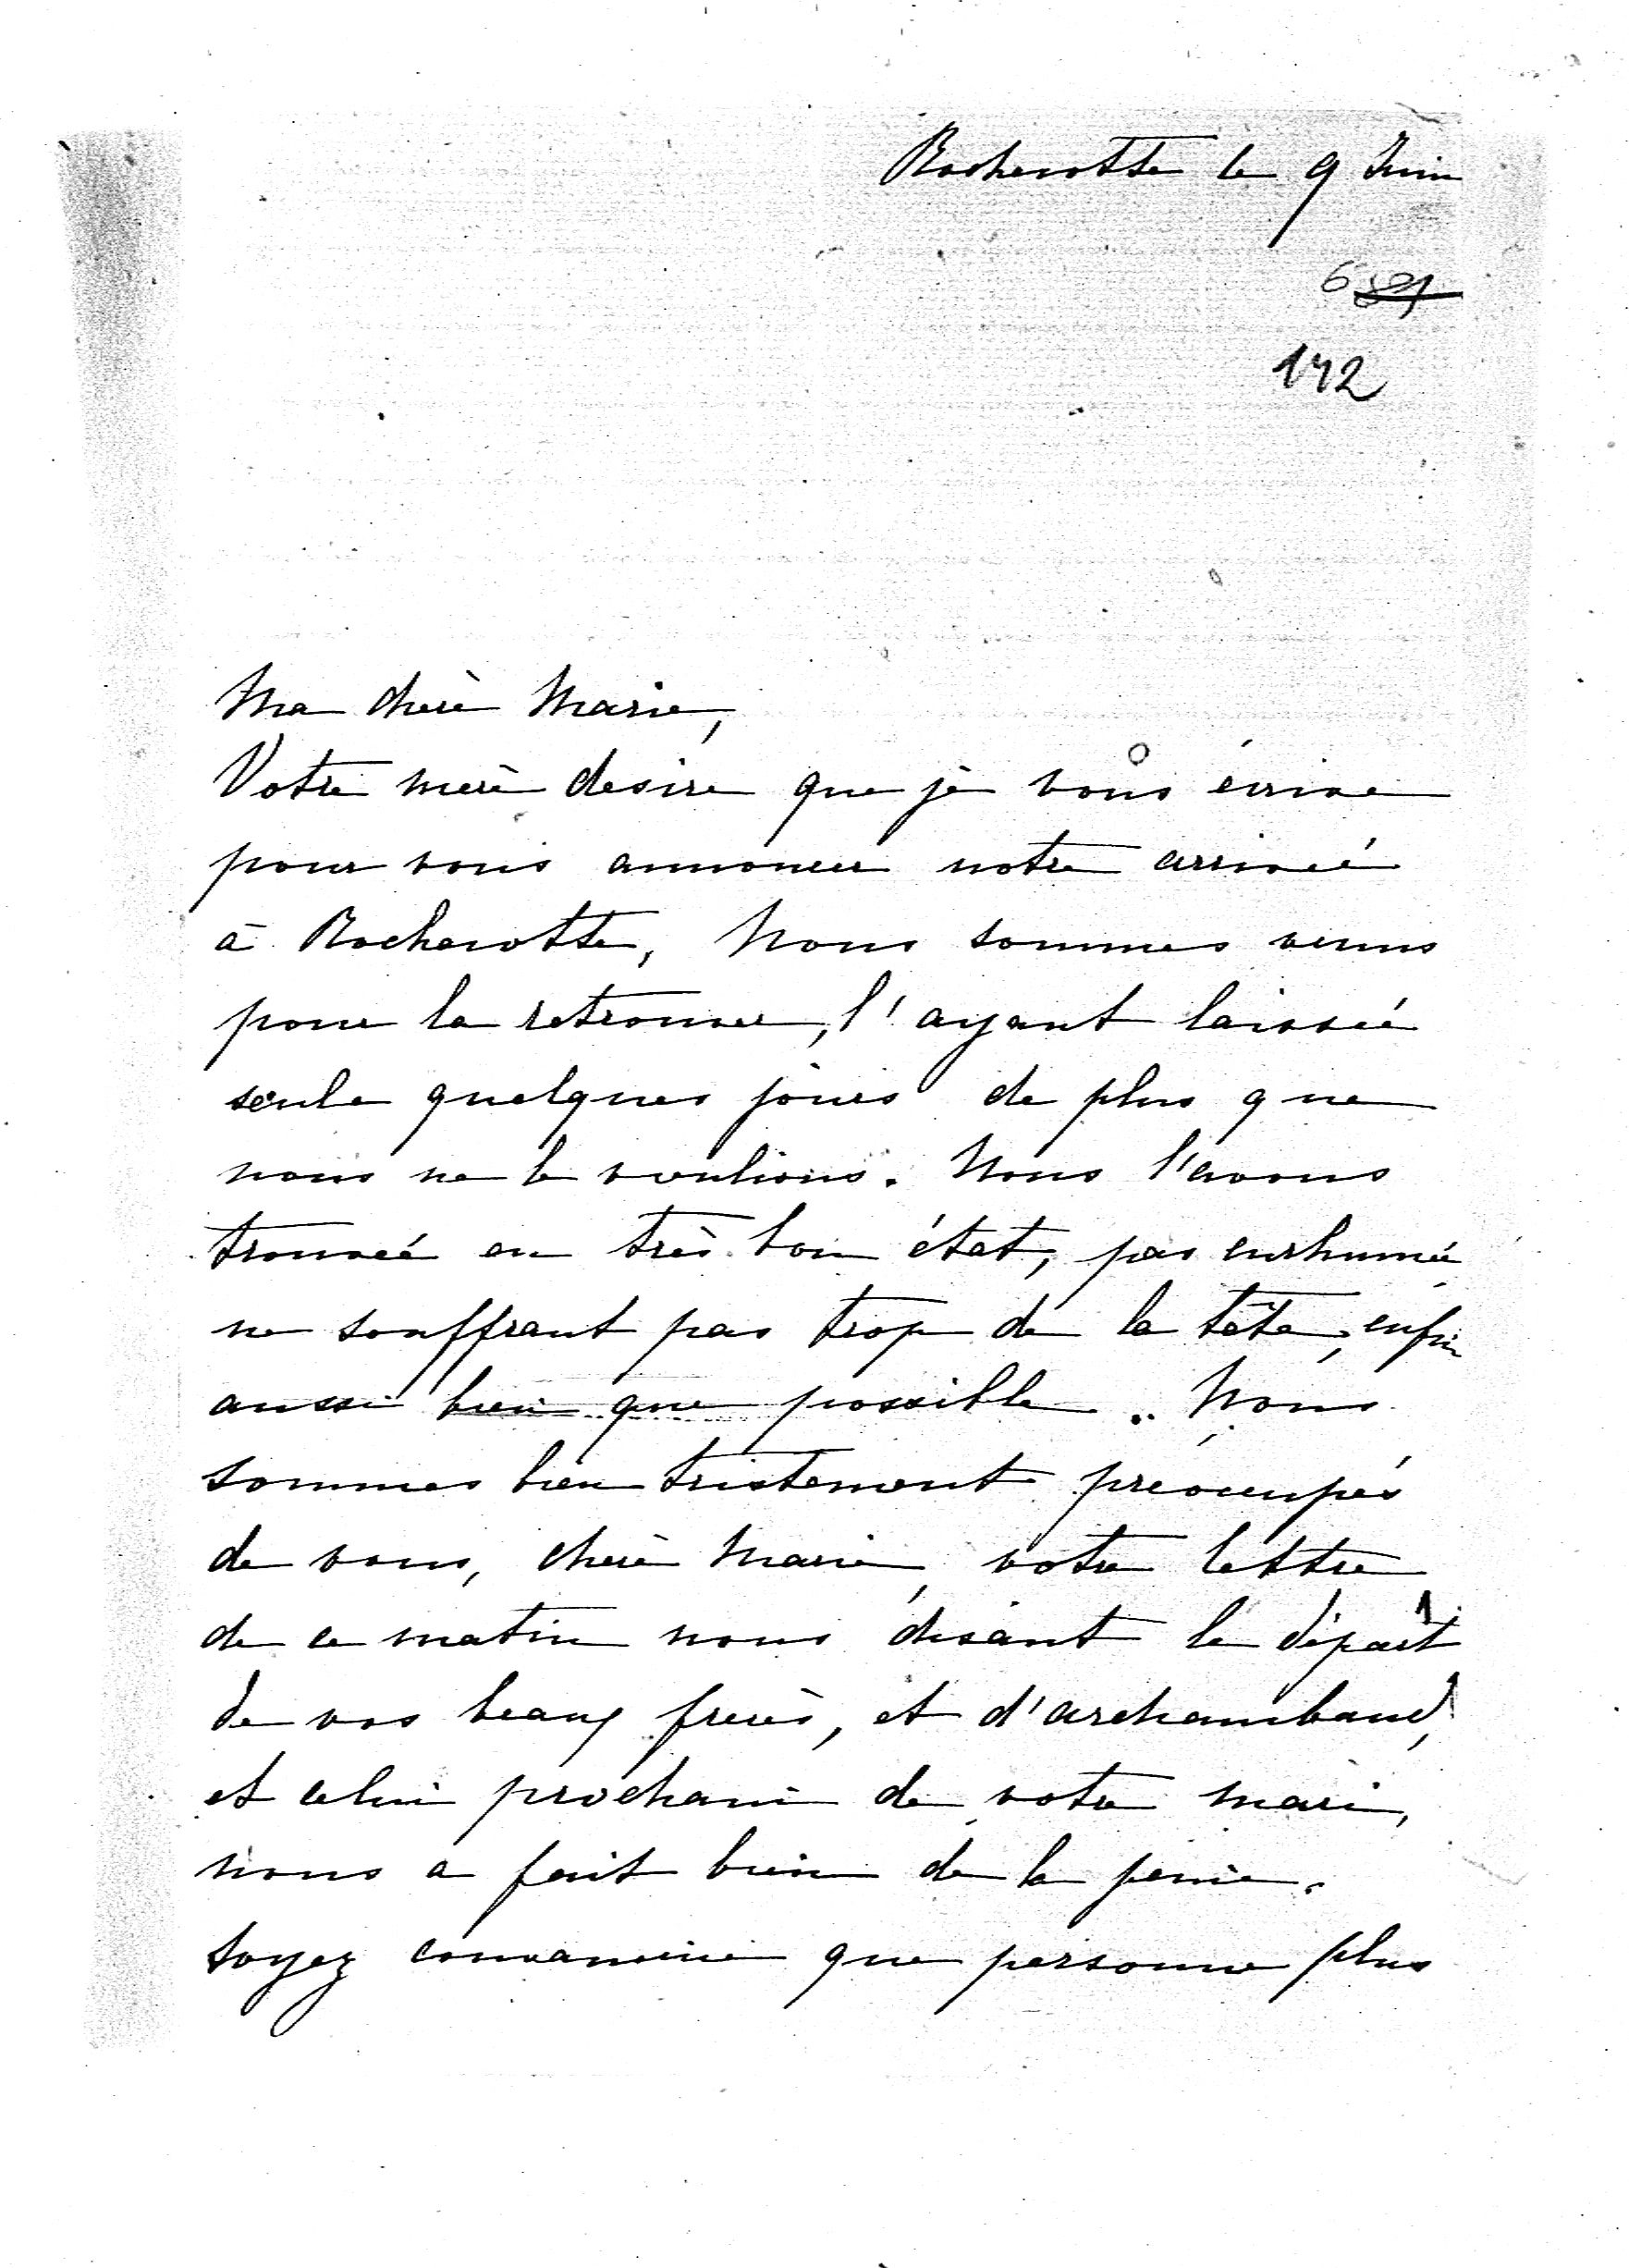 Rochecotte le 9 Juin
6
142
Ma chère Marie,
Votre mère desire que je vous écrive
pour vous annoncer notre arrivée
à Rochecotte, Nous sommes venus
pour la retrouver, l'ayant laissée
seule quelques jours de plus que
nous ne le voulions. Nous l'avons
trouvée en très bon état, pas enrhumée
ne souffrant pas trop de la tête, enfin
aussi bien que possible. Nous
sommes bien tristement préocupés
de vous, chère Marie, votre lettre
de ce matin nous disant le départ
de vos beaux frères, et d'archambaud,
et celui prochain de votre mari,
nous a fait bien de la peine.
soyez convaincue que personne plus